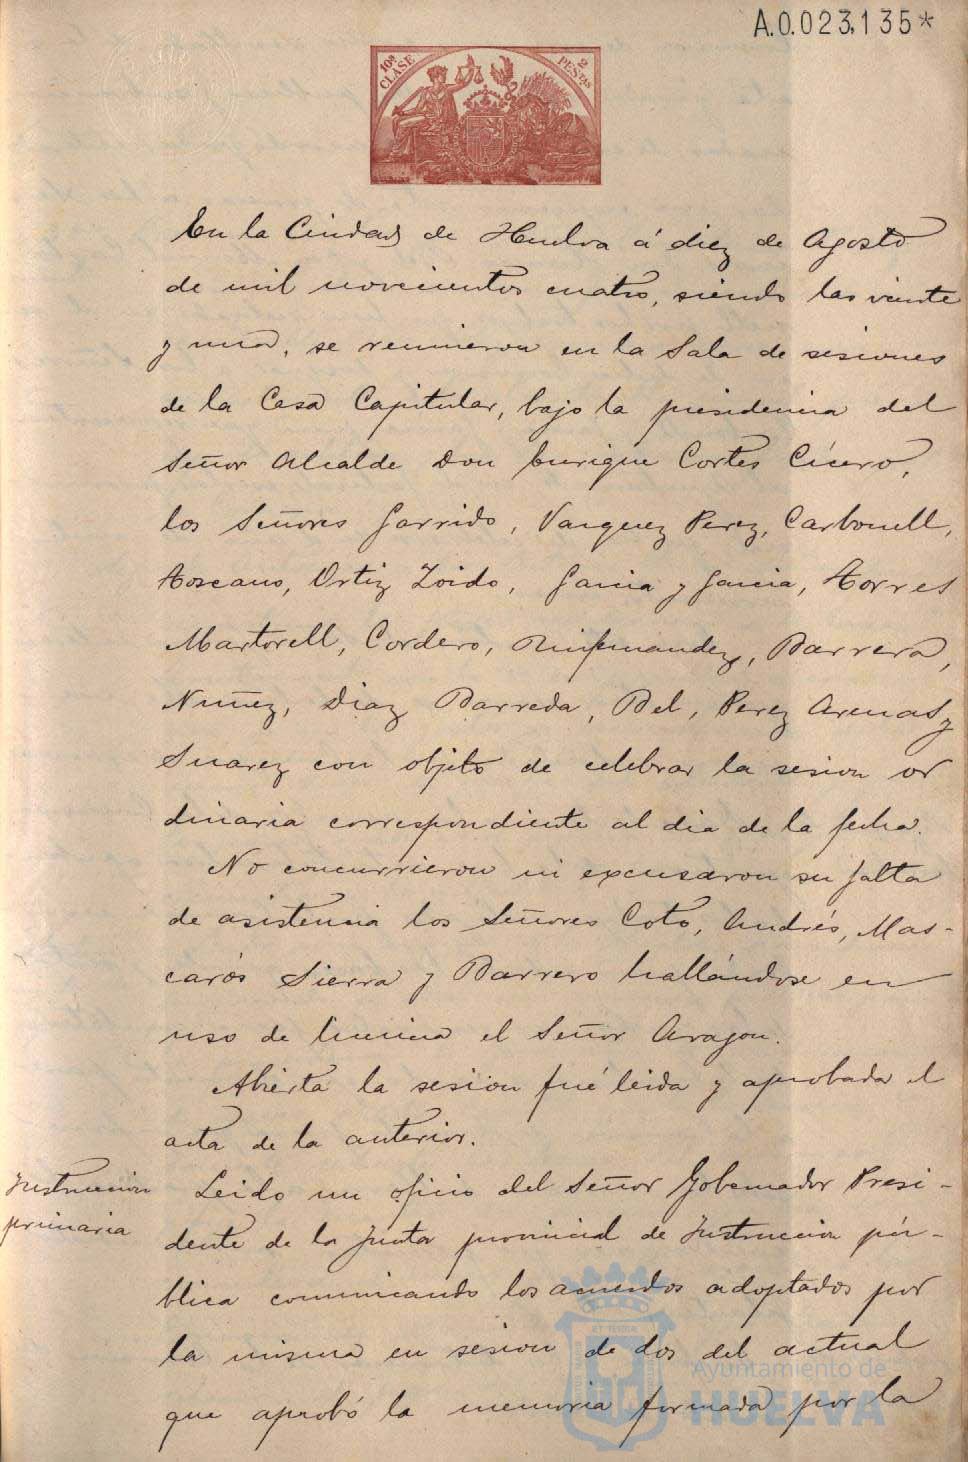 A.0.023,135*
10ª CLASE 2 PESTAS
En la Ciudad de Huelva á diez de Agosto
de mil novecientos cuatro, siendo las veinte
y una, se reunieron en la Sala de sesiones
de la Casa Capitular, bajo la presidencia del
Señor Alcalde Don Enrique Cortes Cícero,
los Señores Garrido, Vazquez Perez, Carbonell,
Toscano, Ortiz Zoido, Garcia y Garcia, Torres
Martorell, Cordero, Quifernandez, Barrera,
Nuñez, Diaz Barreda, Bel, Perez Arenas y
Suarez con objeto de celebrar la sesion or
dinaria correspondiente al dia de la fecha.
No concurrieron ni excusaron su falta
de asistencia los Señores Coto, Andrés, Mas-
carós Sierra y Barrero hallándose en
uso de licencia el Señor Aragon.
Abierta la sesion fué leida y aprobada el
acta de la anterior.
Instruccion
primaria
Leido un oficio del Señor Gobernador Presi-
dente de la Junta provincial de Instruccion pú-
blica comunicando los acuerdos adoptados por
la misma en sesion de dos del actual
que aprobó la memoria formada por la
Ayuntamiento de
HUELVA